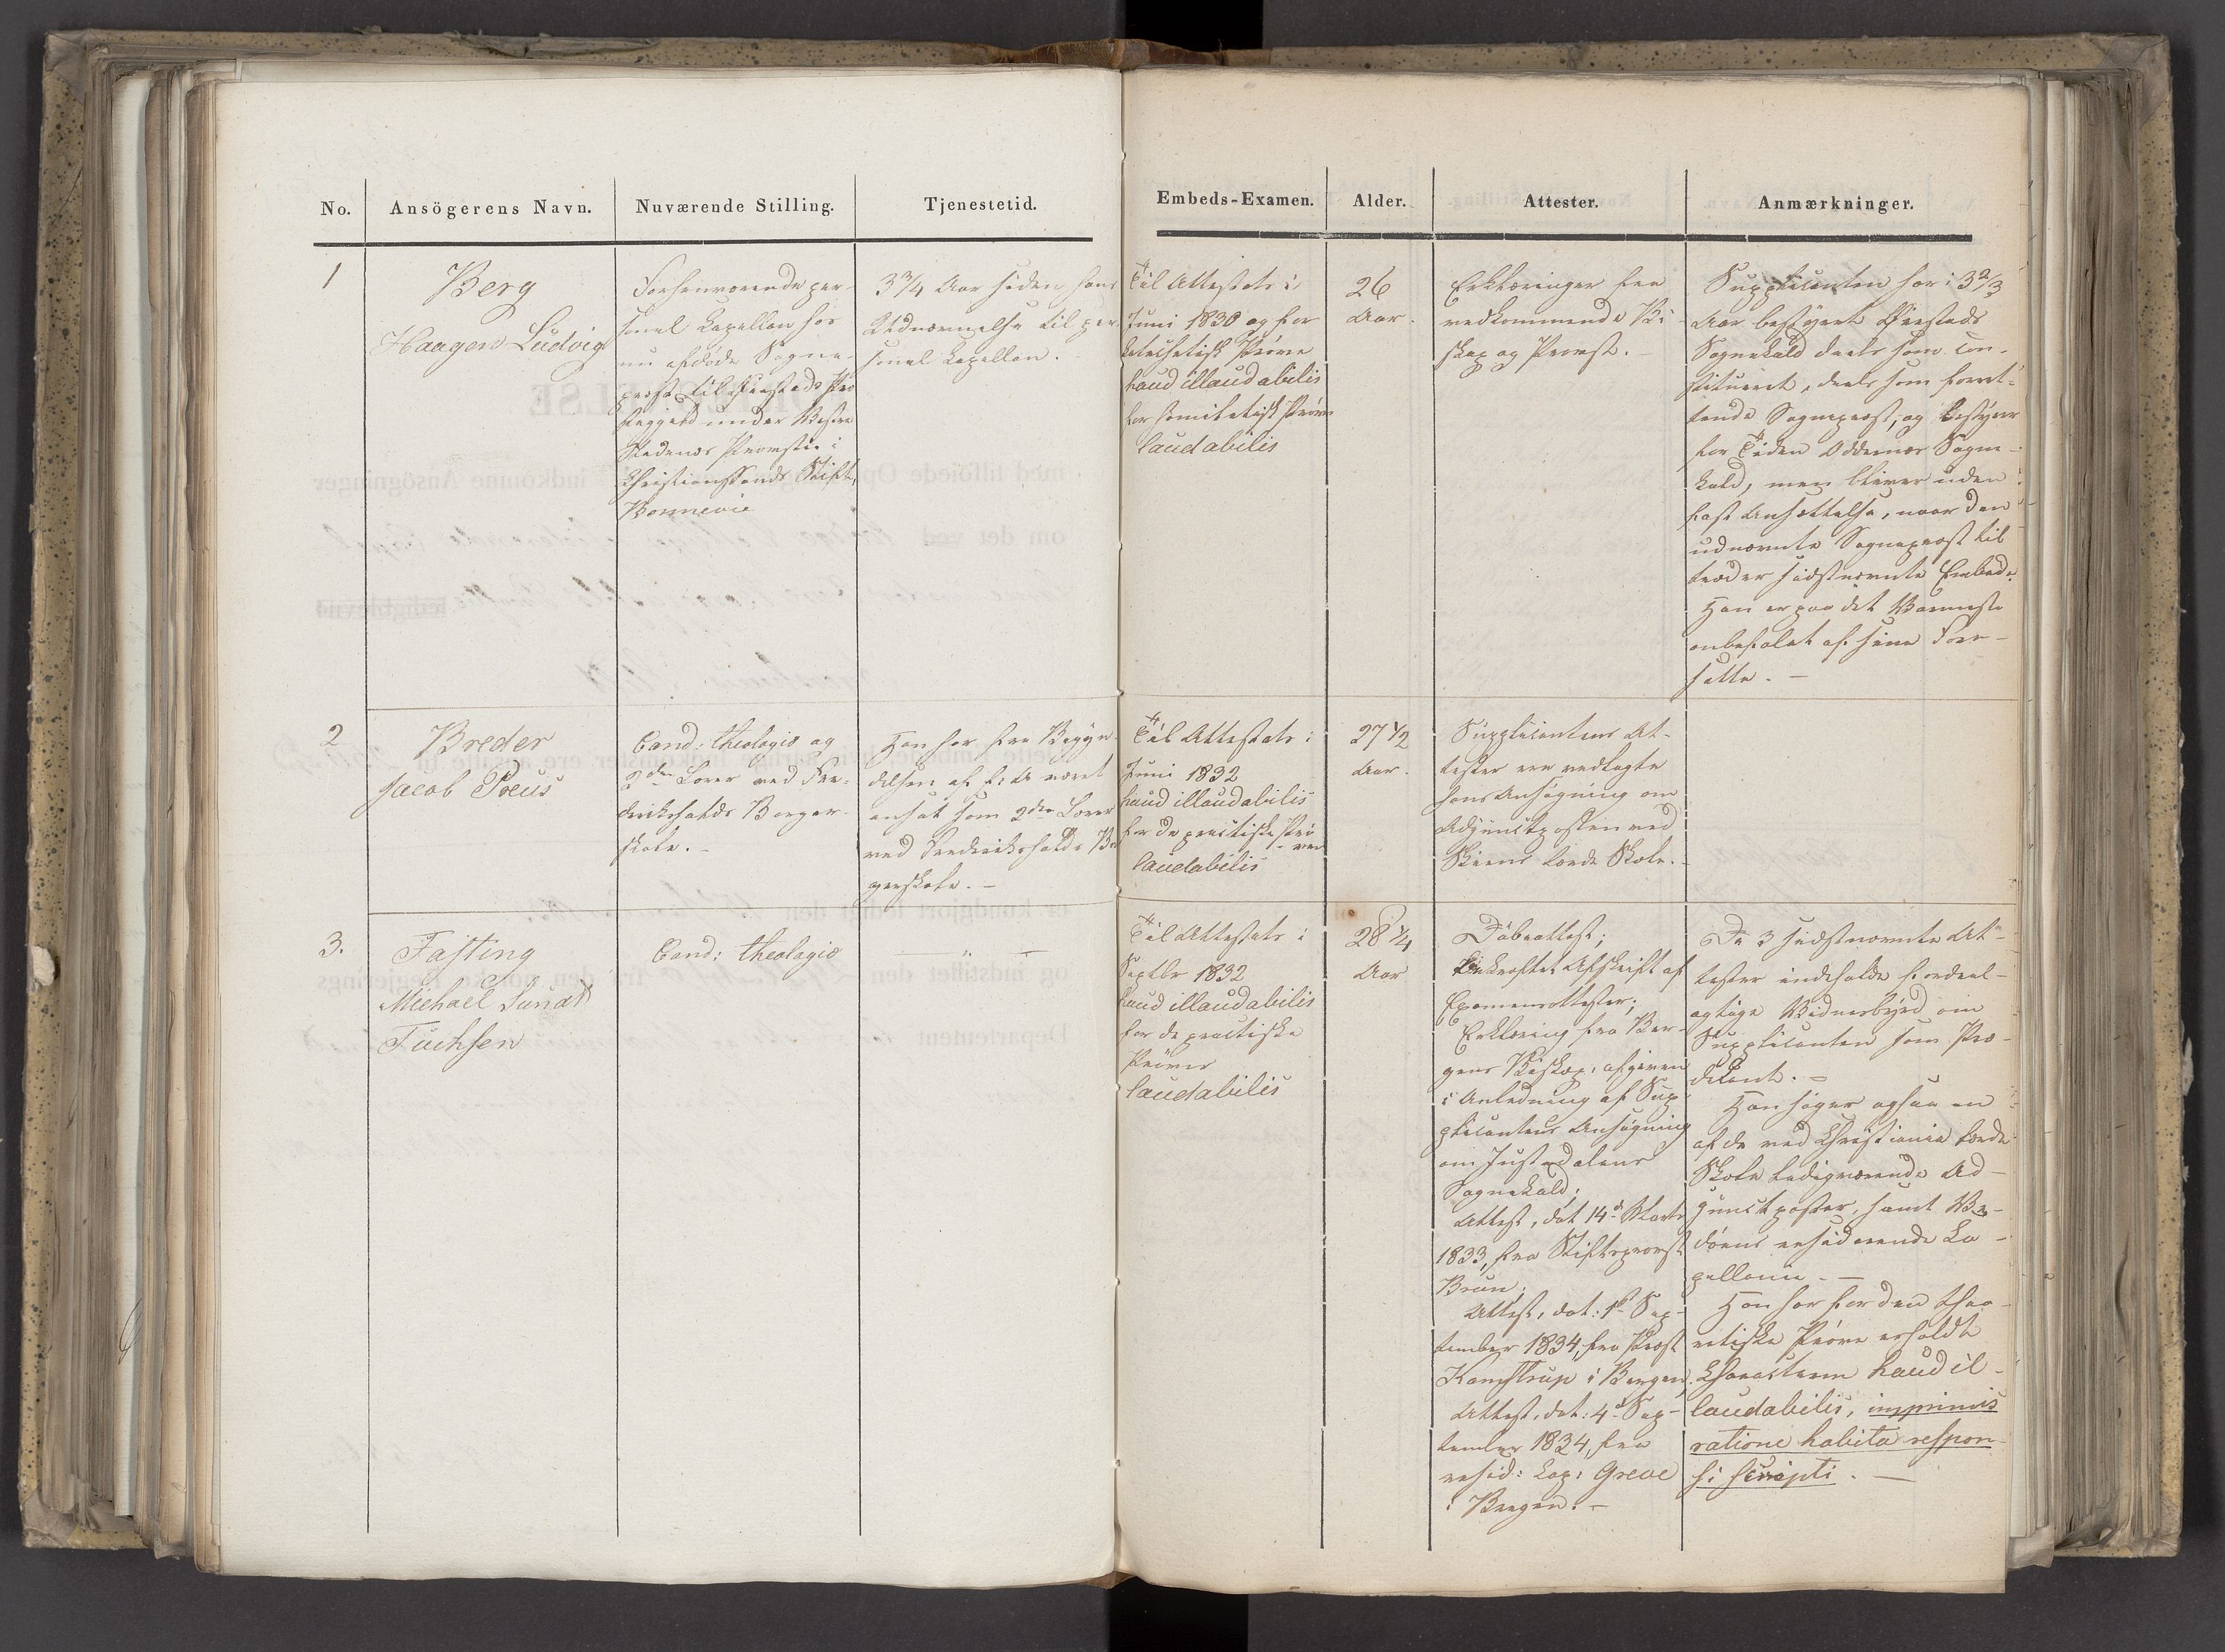 No.
Ansögerens Navn.
Nuværende Stilling.
Tjenestetid.
Embeds-Examen.
Alder.
Attester.
Anmærkninger.
1
Berg
Haagen Ludvig
Forhenværende per-
sonel Kapellan hos
nu afdöde Sogne-
præst til Præ
stegjeld under Vestre
Nedenæs Provstie i
Christianssands Stift,
Bonnevie
3¾ Aar siden hans
Udnævnelse til per-
sonel Kapellan.
Til Attestats i
Juni 1830 og for
katechetisk Pröve
haud illaudabilis
for homiletisk Pröve
laudabilis
26
Aar.
Erklæringer fra
vedkommende Bi-
skop og Provst.
Supplicanten har i 3⅔
Aar bestyret
Sognekald deels som con-
stitueret, deels som forret-
tende Sognepræst, og bestyrer
for Tiden Oddernæs Sogne-
kald, men bliver uden
fast Ansættelse, naar den
udnævnte Sognepræst til
træder sidstnævnte Embede.
Han er paa det Varmeste
anbefalet af sine Fore-
satte. —
2
Breder
Jacob Preus
Cand: theologiæ og
2den Lærer ved Fre-
derikshalds Borger-
skole. —
Han har fra Begyn-
delsen af f: A været
ansat som 2den Lærer
ved Frederikshalds Bor
gerskole. —
Til Attestats i
Juni 1832
haud illaudabilis
for de practiske Prö-
ver
laudabilis
27½
Aar.
Supplicantens At-
tester ere vedlagte
hans Ansögning om
Adjunctposten ved
Skiens lærde Skole. —
3.
Fasting
Michael Sundt
Fuchsen
Cand: theologiæ
— „ —
Til Attestats i
Septbr 1832
haud illaudabilis
for de practiske
Pröver
laudabilis
28¼
Aar
Döbeattest;
Bekræftet Afskrift af
Examensattester;
Erklæring fra Ber-
gens Biskop, afgiven
i Anledning af Sup-
plicantens Ansögning
om Justedalens
Sognekald;
Attest, dat 14d Marts
1833, fra Stiftsprovst
Brun;
Attest, dat: 1ste Sep-
tember 1834, fra Præst
Kamstrup i Bergen,
Attest, dat: 4d Sep-
tember 1834, fra
resid: Cap: Greve
i Bergen. —
De 3 sidstnævnte At-
tester indeholde fordeel-
agtige Vidnesbyrd om
Supplicanten som Præ-
dikant. —
Han söger ogsaa en
af de ved Christiania lærde
Skole ledigværende Ad-
junctposter, samt
residerende Ca-
pellanie. —
Han har for den theo-
retiske Pröve erholdt
Characteren haud il-
laudabilis, imprimis
ratione habita respon-
si scripti. —